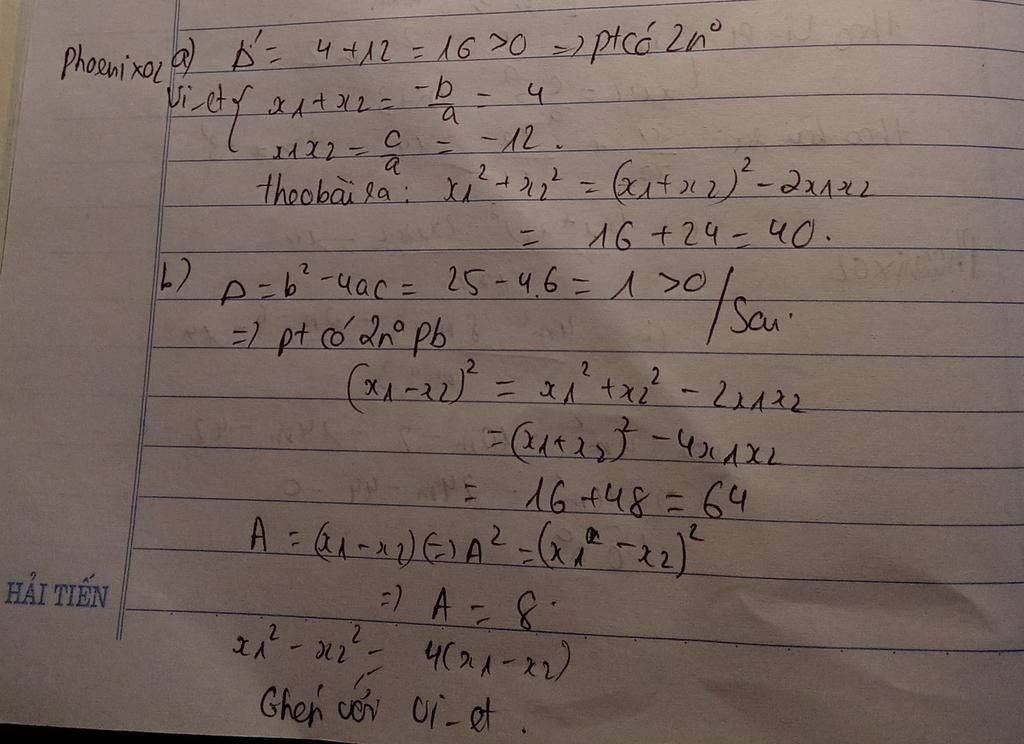 Phoenixo2 a) Δ' = 4 + 12 = 16 > 0 => pt có 2n⁰
Vi-et { x1 + x2 = -b/a = 4
x1x2 = c/a = -12.
theo bài ra: x1² + x2² = (x1 + x2)² - 2x1x2
= 16 + 24 = 40.
b) Δ = b² - 4ac = 25 - 4.6 = 1 > 0 / Sai.
=> pt có 2n⁰ pb
(x1 - x2)² = x1² + x2² - 2x1x2
= (x1 + x2)² - 4x1x2
= 16 + 48 = 64
A = (x1 - x2) (=) A² = (x1 - x2)²
=) A = 8.
HẢI TIẾN
x1² - x2² = 4(x1 - x2)
Ghép với Vi-et.